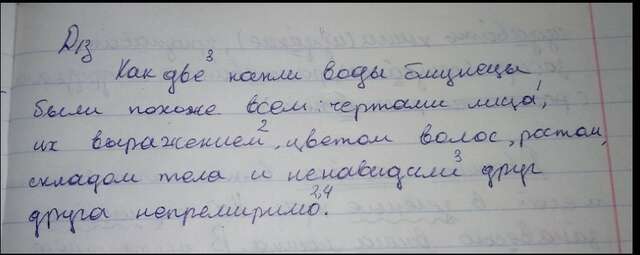 Дз
Как две³ капли воды близнецы
были похоже всем: чертами лица¹,
их выражением², цветом волос, ростом,
складом тела и ненавидили³ друг
друга непремиримо²,⁴.